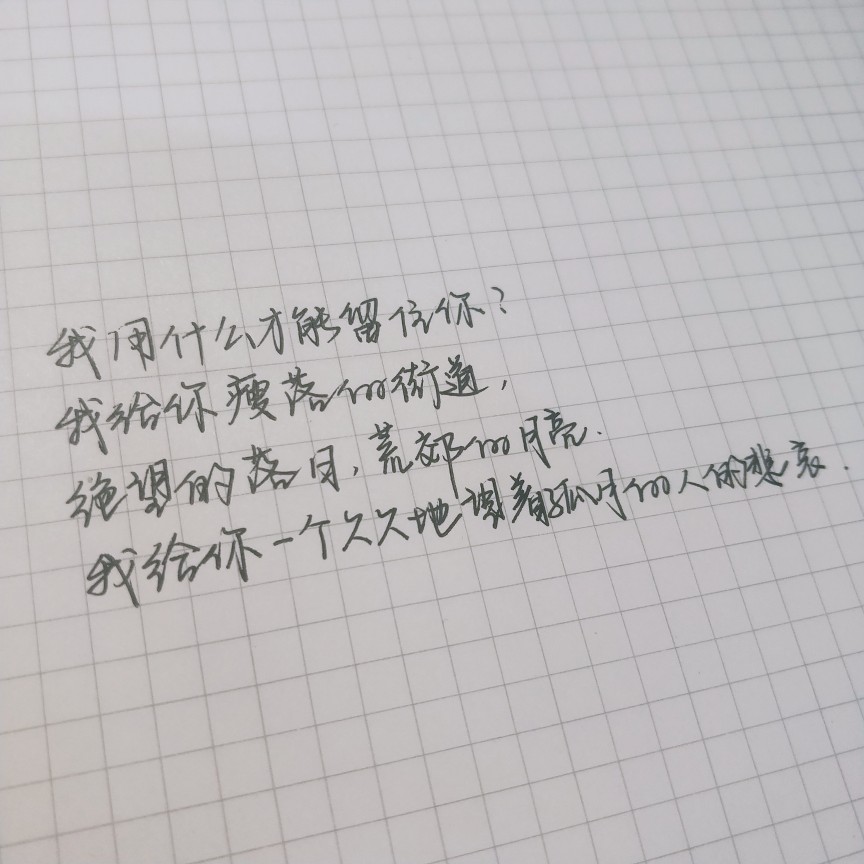 我用什么才能留住你？
我给你瘦落的街道，
绝望的落日，荒郊的月亮.
我给你一个久久地望着孤月的人的悲哀.